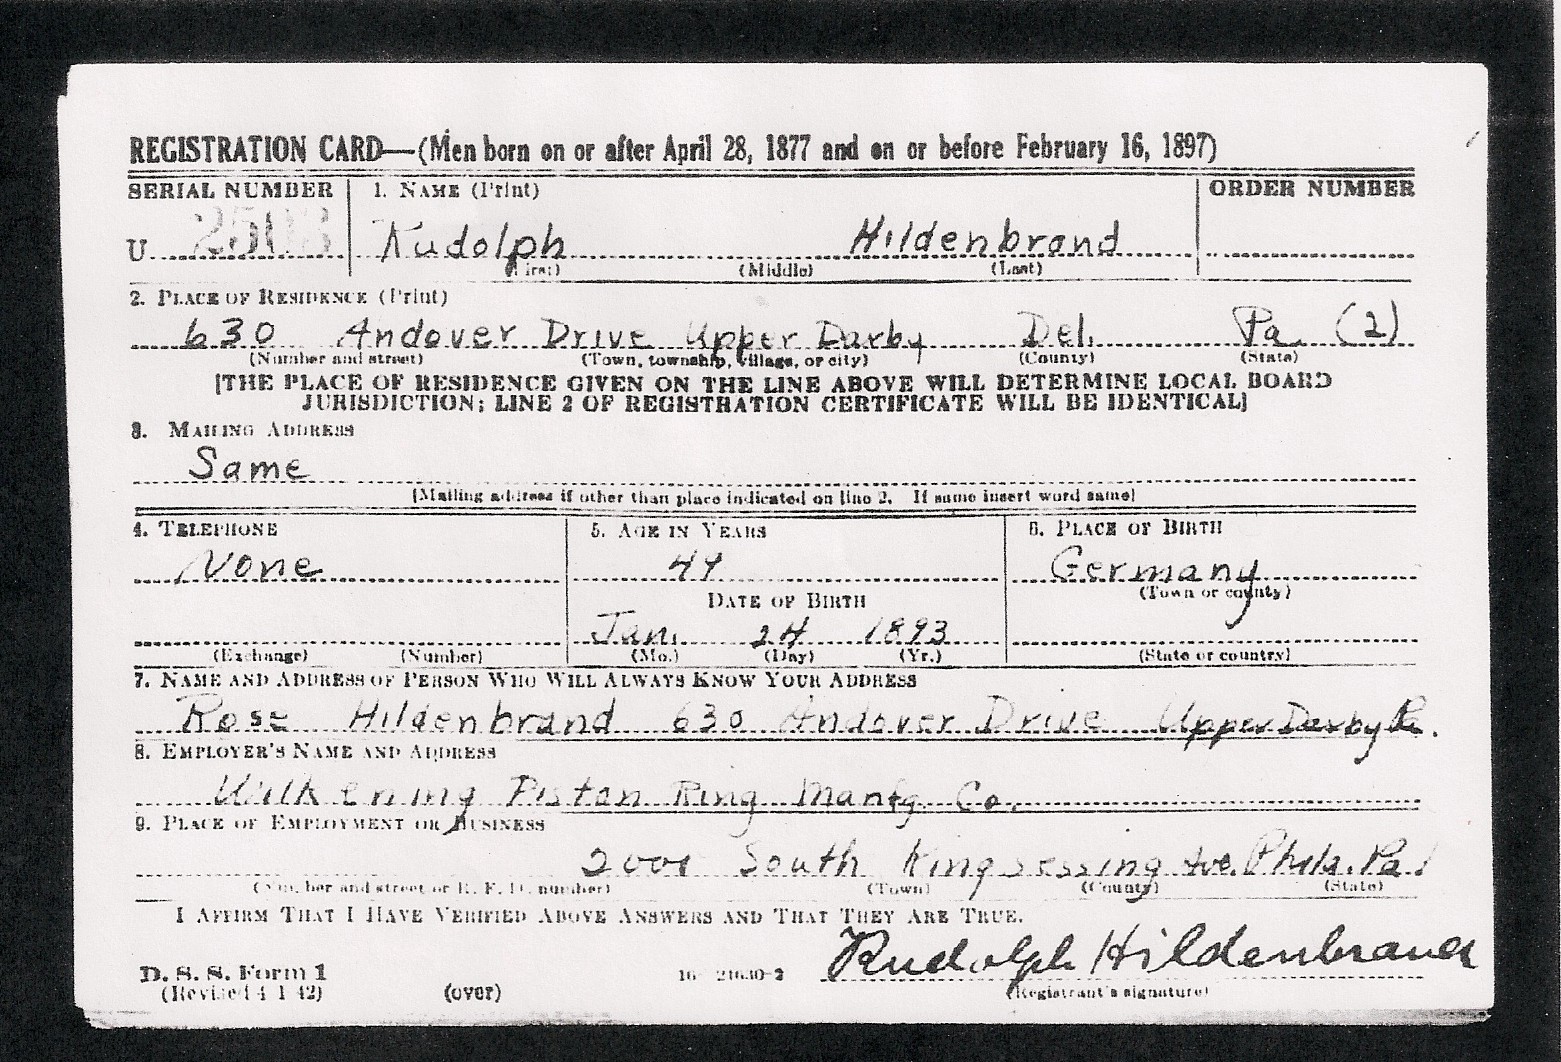 REGISTRATION CARD—(Men born on or after April 28, 1877 and on or before February 16, 1897)
SERIAL NUMBER 1. NAME (Print) ORDER NUMBER
U Rudolph Hildenbrand
(First) (Middle) (Last)
2. PLACE OF RESIDENCE (Print)
630 Andover Drive Upper Darby Del. Pa. (2)
(Number and street) (Town, township, village, or city) (County) (State)
[THE PLACE OF RESIDENCE GIVEN ON THE LINE ABOVE WILL DETERMINE LOCAL BOARD
JURISDICTION; LINE 2 OF REGISTRATION CERTIFICATE WILL BE IDENTICAL]
3. MAILING ADDRESS
Same
[Mailing address if other than place indicated on line 2. If same insert word same]
4. TELEPHONE 5. AGE IN YEARS 6. PLACE OF BIRTH
None 49 Germany
(Town or county)
DATE OF BIRTH
Jan. 24 1893
(Exchange) (Number) (Mo.) (Day) (Yr.) (State or country)
7. NAME AND ADDRESS OF PERSON WHO WILL ALWAYS KNOW YOUR ADDRESS
Rose Hildenbrand 630 Andover Drive Upper Darby Pa.
8. EMPLOYER'S NAME AND ADDRESS
Wilkening Piston Ring Manfg. Co.
9. PLACE OF EMPLOYMENT OR BUSINESS
2000 South Kingsessing Ave. Phila. Pa.
(Number and street or R. F. D. number) (Town) (County) (State)
I AFFIRM THAT I HAVE VERIFIED ABOVE ANSWERS AND THAT THEY ARE TRUE.
Rudolph Hildenbrand
D. S. S. Form 1 16—21630-2
(Revised 4-1-42) (over) (Registrant's signature)